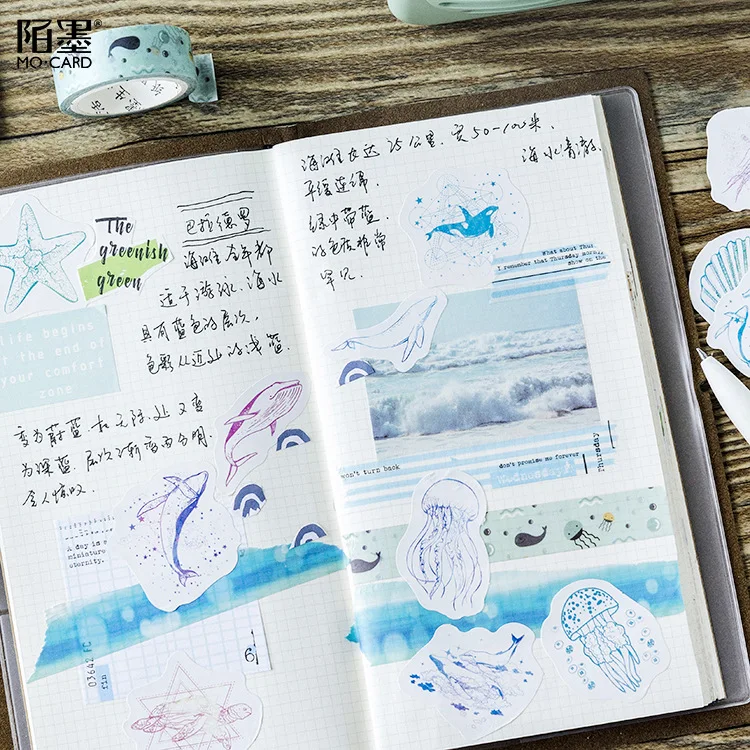 陌墨®
MO·CARD
The
greenish
green
巴拉德罗
海滩全年都
适于游泳.海水
具有蓝色的层次,
色彩从近处的浅蓝.
变为蔚蓝 和无际处又变
为深蓝.层次渐变而分明.
令人惊叹.
life begins
at the end of
your comfort
zone
A day is a
miniature
eternity.
03642 FC
fin
6
海滩长达25公里.宽50-100米,
海水清澈.
平缓连绵.
绿中带蓝.
的色泽非常
罕见.
What about Thu
I remember that Thursday mornng
show on the
won't turn back
don't promise me forever
Wednesday
Thursday